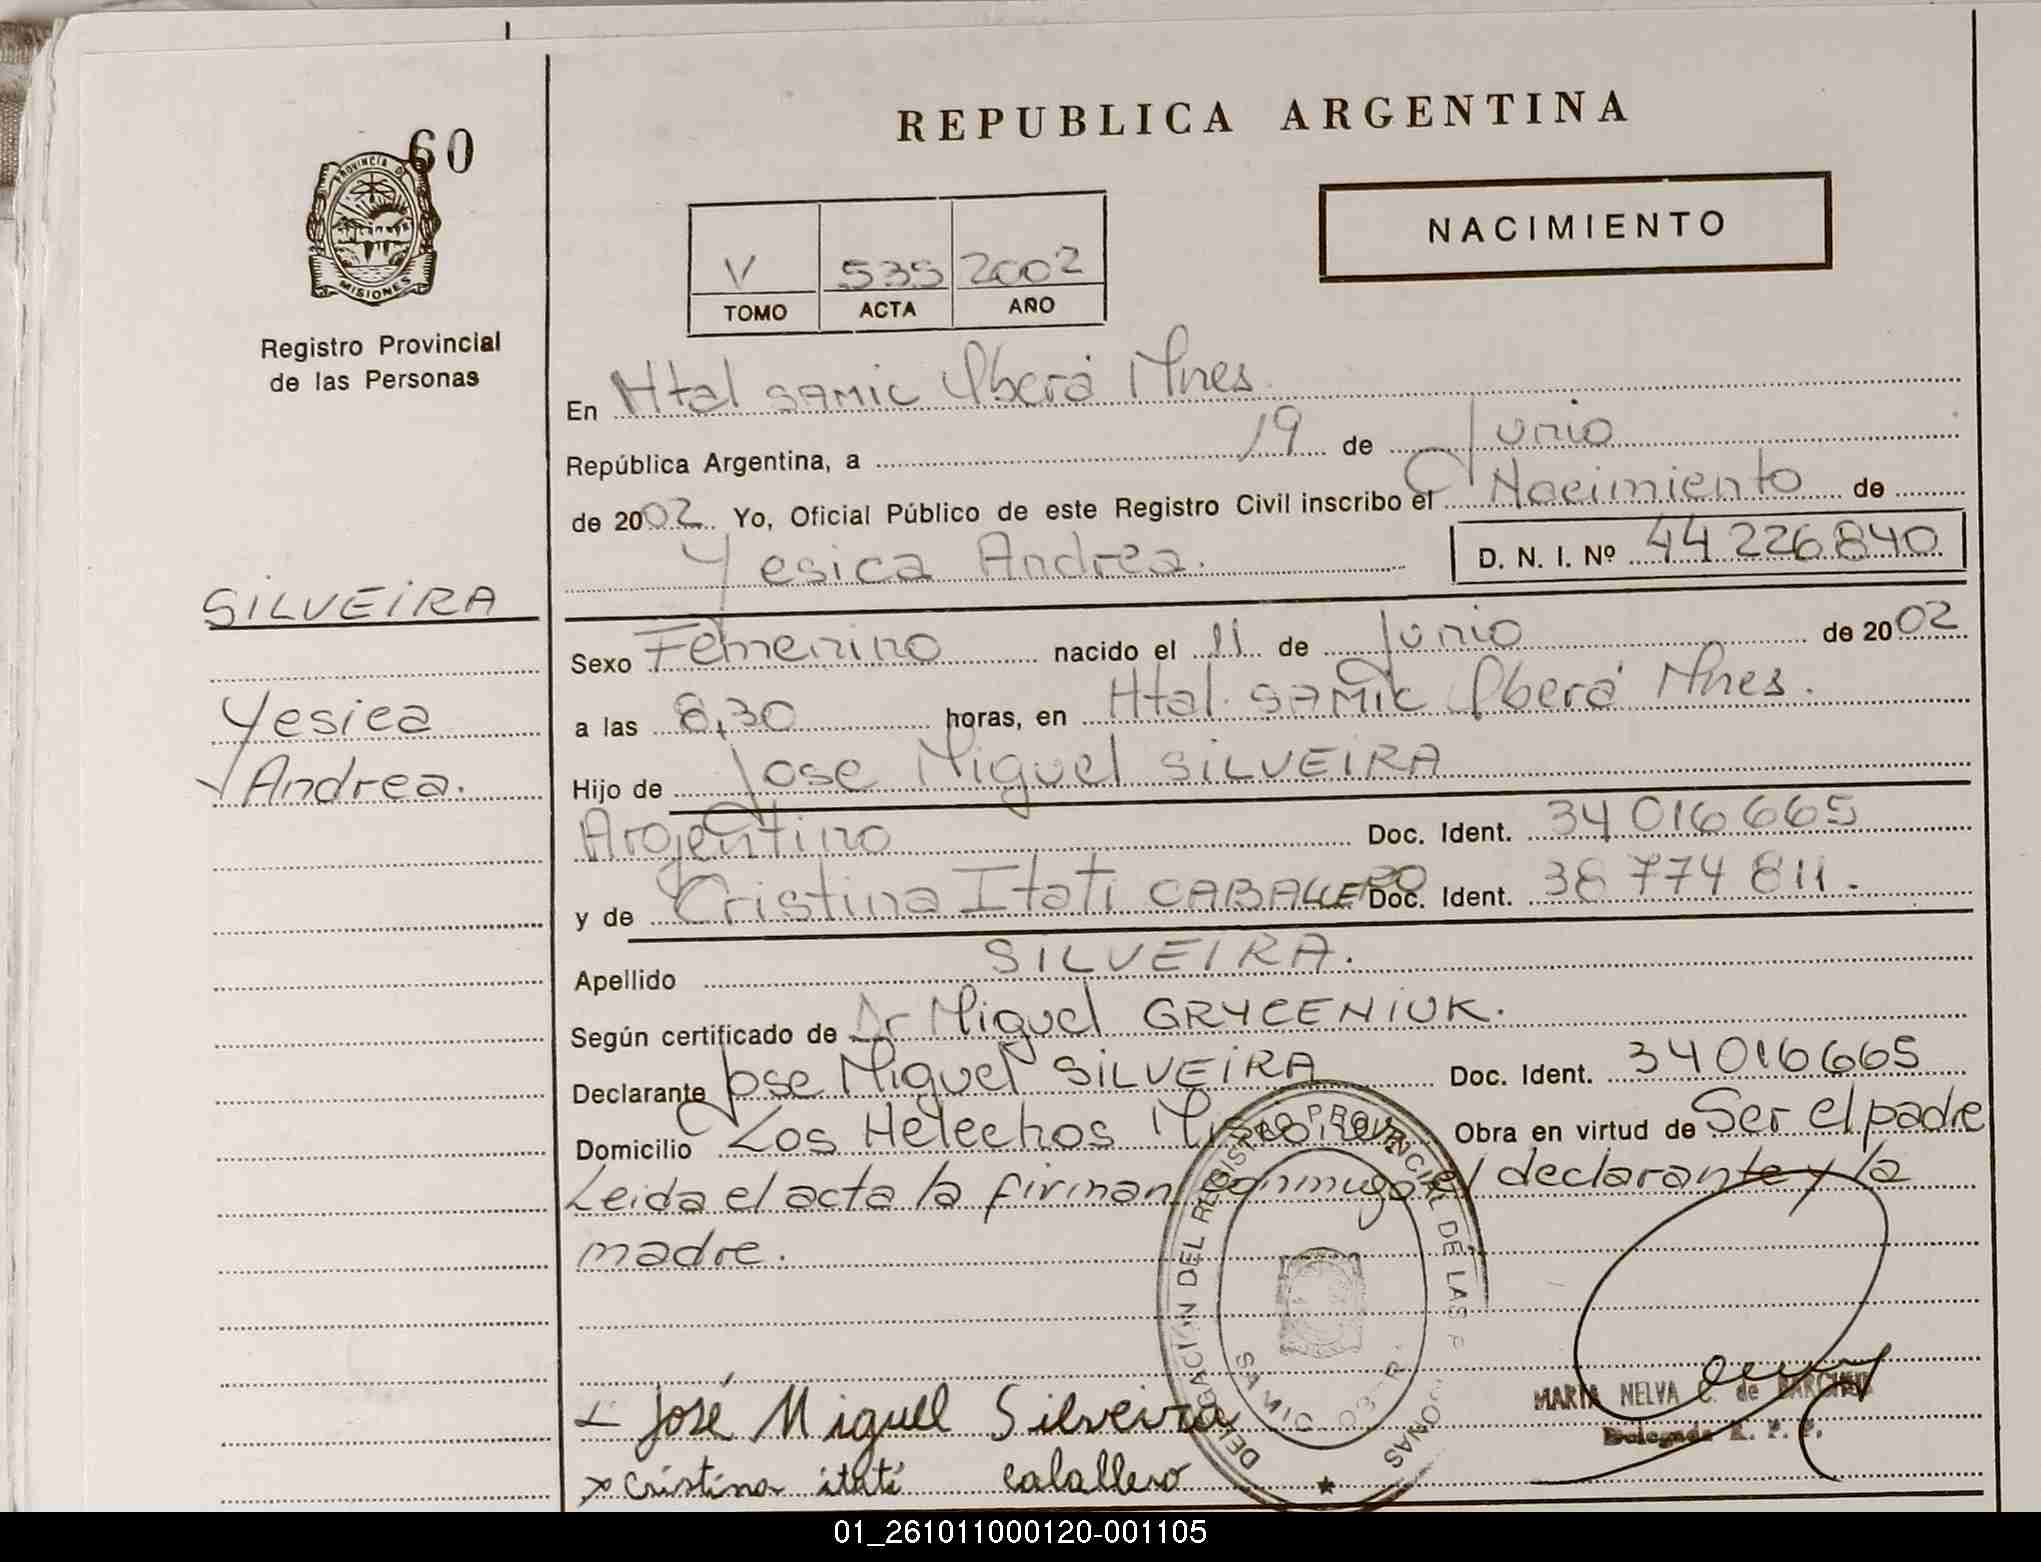 REPUBLICA ARGENTINA
60
PROVINCIA DE
MISIONES
Registro Provincial
de las Personas
NACIMIENTO
V 535 2002
TOMO ACTA AÑO
En Htal SAMIC Oberá Mnes
República Argentina, a 19 de Junio
de 2002 Yo, Oficial Público de este Registro Civil inscribo el Nacimiento de
Yesica Andrea. D. N. I. Nº 44 226 840
SILVEIRA
Yesica
Andrea.
Sexo Femenino nacido el 11 de Junio de 2002
a las 8,30 horas, en Htal. SAMIC Oberá Mnes.
Hijo de Jose Miguel SILVEIRA
Argentino Doc. Ident. 34 016 665
y de Cristina Itati CABALLERO Doc. Ident. 38 774 811.
Apellido SILVEIRA.
Según certificado de Dr Miguel GRYCENIUK.
Declarante Jose Miguel SILVEIRA Doc. Ident. 34 016 665
Domicilio Los Helechos Obra en virtud de Ser el padre
Leida el acta la firman conmigo el declarante y la
madre.
DELEGACIÓN DEL REGISTRO PROVINCIAL DE LAS PERSONAS
José Miguel Silveira
MARIA NELVA C. de
Delegada R. P. P.
x Cristina itatí caballero
01_261011000120-001105